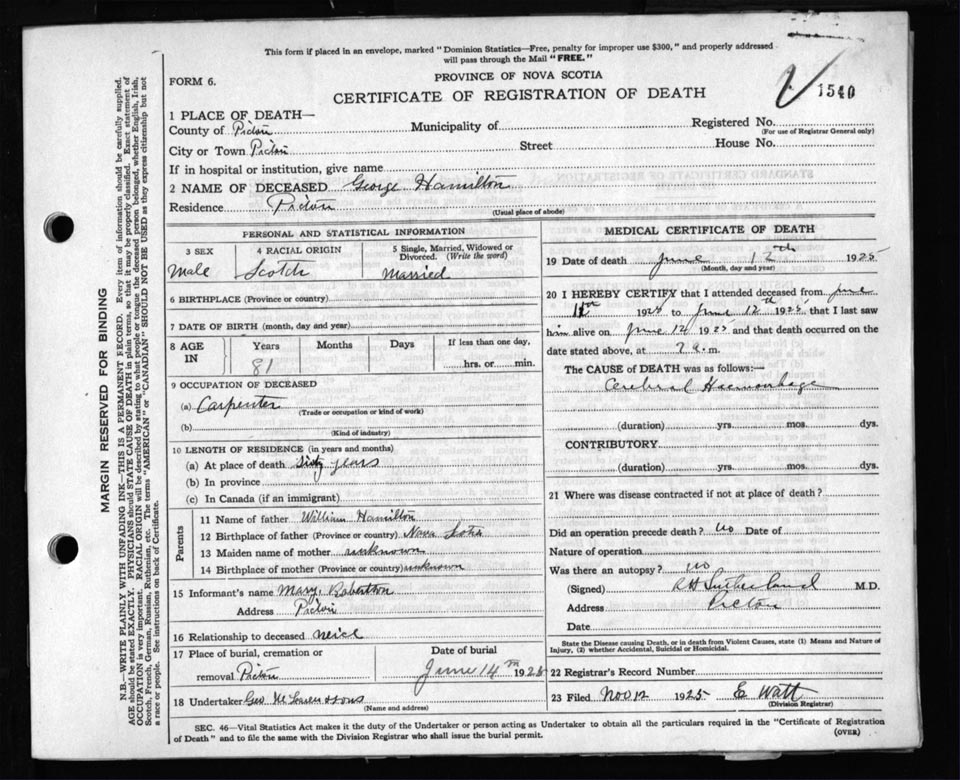 This form if placed in an envelope, marked "Dominion Statistics—Free, penalty for improper use $300," and properly addressed
will pass through the Mail "FREE."
PROVINCE OF NOVA SCOTIA
FORM 6.
CERTIFICATE OF REGISTRATION OF DEATH
1540
1 PLACE OF DEATH—
County of Pictou Municipality of Registered No.
(For use of Registrar General only)
City or Town Pictou Street House No.
If in hospital or institution, give name
2 NAME OF DECEASED George Hamilton
Residence Pictou
(Usual place of abode)
PERSONAL AND STATISTICAL INFORMATION
3 SEX 4 RACIAL ORIGIN 5 Single, Married, Widowed or
Divorced. (Write the word)
Male Scotch Married
6 BIRTHPLACE (Province or country)
7 DATE OF BIRTH (month, day and year)
8 AGE IN Years Months Days If less than one day,
81 hrs. or min.
9 OCCUPATION OF DECEASED
(a) Carpenter
(Trade or occupation or kind of work)
(b)
(Kind of industry)
10 LENGTH OF RESIDENCE (in years and months)
(a) At place of death sixty years
(b) In province
(c) In Canada (if an immigrant)
Parents
11 Name of father William Hamilton
12 Birthplace of father (Province or country) Nova Scotia
13 Maiden name of mother unknown
14 Birthplace of mother (Province or country) unknown
15 Informant's name Mary Robertson
Address Pictou
16 Relationship to deceased neice
17 Place of burial, cremation or Date of burial
removal Pictou June 14th 1925
18 Undertaker Geo & Sons
(Name and address)
MEDICAL CERTIFICATE OF DEATH
19 Date of death June 12th 1925
(Month, day and year)
20 I HEREBY CERTIFY that I attended deceased from June
11th 1925 to June 12th 1925 that I last saw
him alive on June 12 1925 and that death occurred on the
date stated above, at 7 a. m.
The CAUSE of DEATH was as follows:—
Cerebral Haemorrhage
(duration) yrs. mos. dys.
CONTRIBUTORY
(duration) yrs. mos. dys.
21 Where was disease contracted if not at place of death?
Did an operation precede death? no Date of
Nature of operation
Was there an autopsy? no
(Signed) Sutherland M.D.
Address Pictou
Date
State the Disease causing Death, or in death from Violent Causes, state (1) Means and Nature of
Injury, (2) whether Accidental, Suicidal or Homicidal.
22 Registrar's Record Number
23 Filed Nov 12 1925 E Watt
(Division Registrar)
SEC. 46—Vital Statistics Act makes it the duty of the Undertaker or person acting as Undertaker to obtain all the particulars required in the "Certificate of Registration
of Death" and to file the same with the Division Registrar who shall issue the burial permit.
(OVER)
MARGIN RESERVED FOR BINDING
N.B.—WRITE PLAINLY WITH UNFADING INK—THIS IS A PERMANENT RECORD. Every item of information should be carefully supplied.
AGE should be stated EXACTLY. PHYSICIANS should STATE CAUSE OF DEATH in plain terms, so that it may be properly classified. Exact statement of
OCCUPATION is very important. RACIAL ORIGIN will be described by stating to what people or tongue the deceased person belonged, whether English, Irish,
Scotch, French, German, Russian, Ruthenian, etc. The terms "AMERICAN" or "CANADIAN" SHOULD NOT BE USED as they express citizenship but not
a race or people. See instructions on back of Certificate.